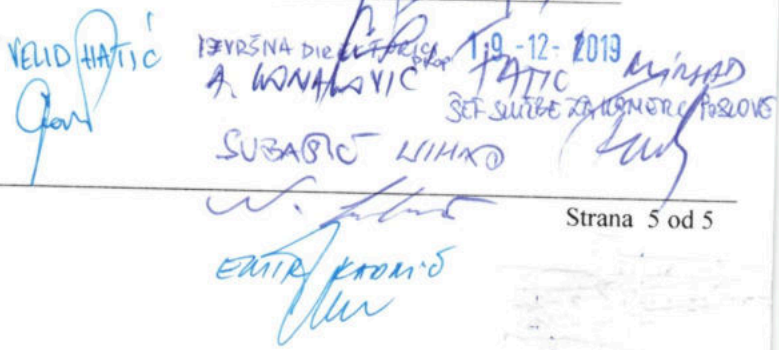 VELID HATIĆ
IZVRŠNA DIREKTORICA
19 -12- 2019
A. KONAKOVIĆ
TATIĆ MIRHAD
ŠEF SLUŽBE ZA KOMERC. POSLOVE
SUBAŠIĆ NIHAD
Strana 5 od 5
EMIR KADRIĆ